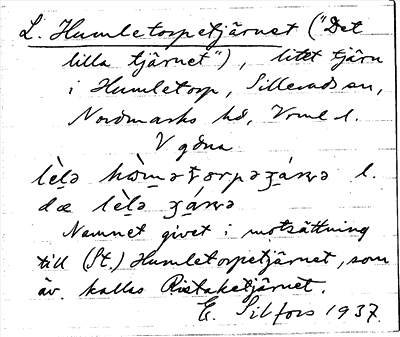 L. Humletorpetjärnet ("Det
lilla tjärnet"), litet tjärn
i Humletorp, Sillerudssn,
Nordmarks hd, Vrml l.
V gðna
lèl̯ə
l.
dæ lèl̯ə
Namnet givet i motsättning
till (St.) Humletorpetjärnet, som
äv. kallas Ristaketjärnet.
E. Silfors 1937.